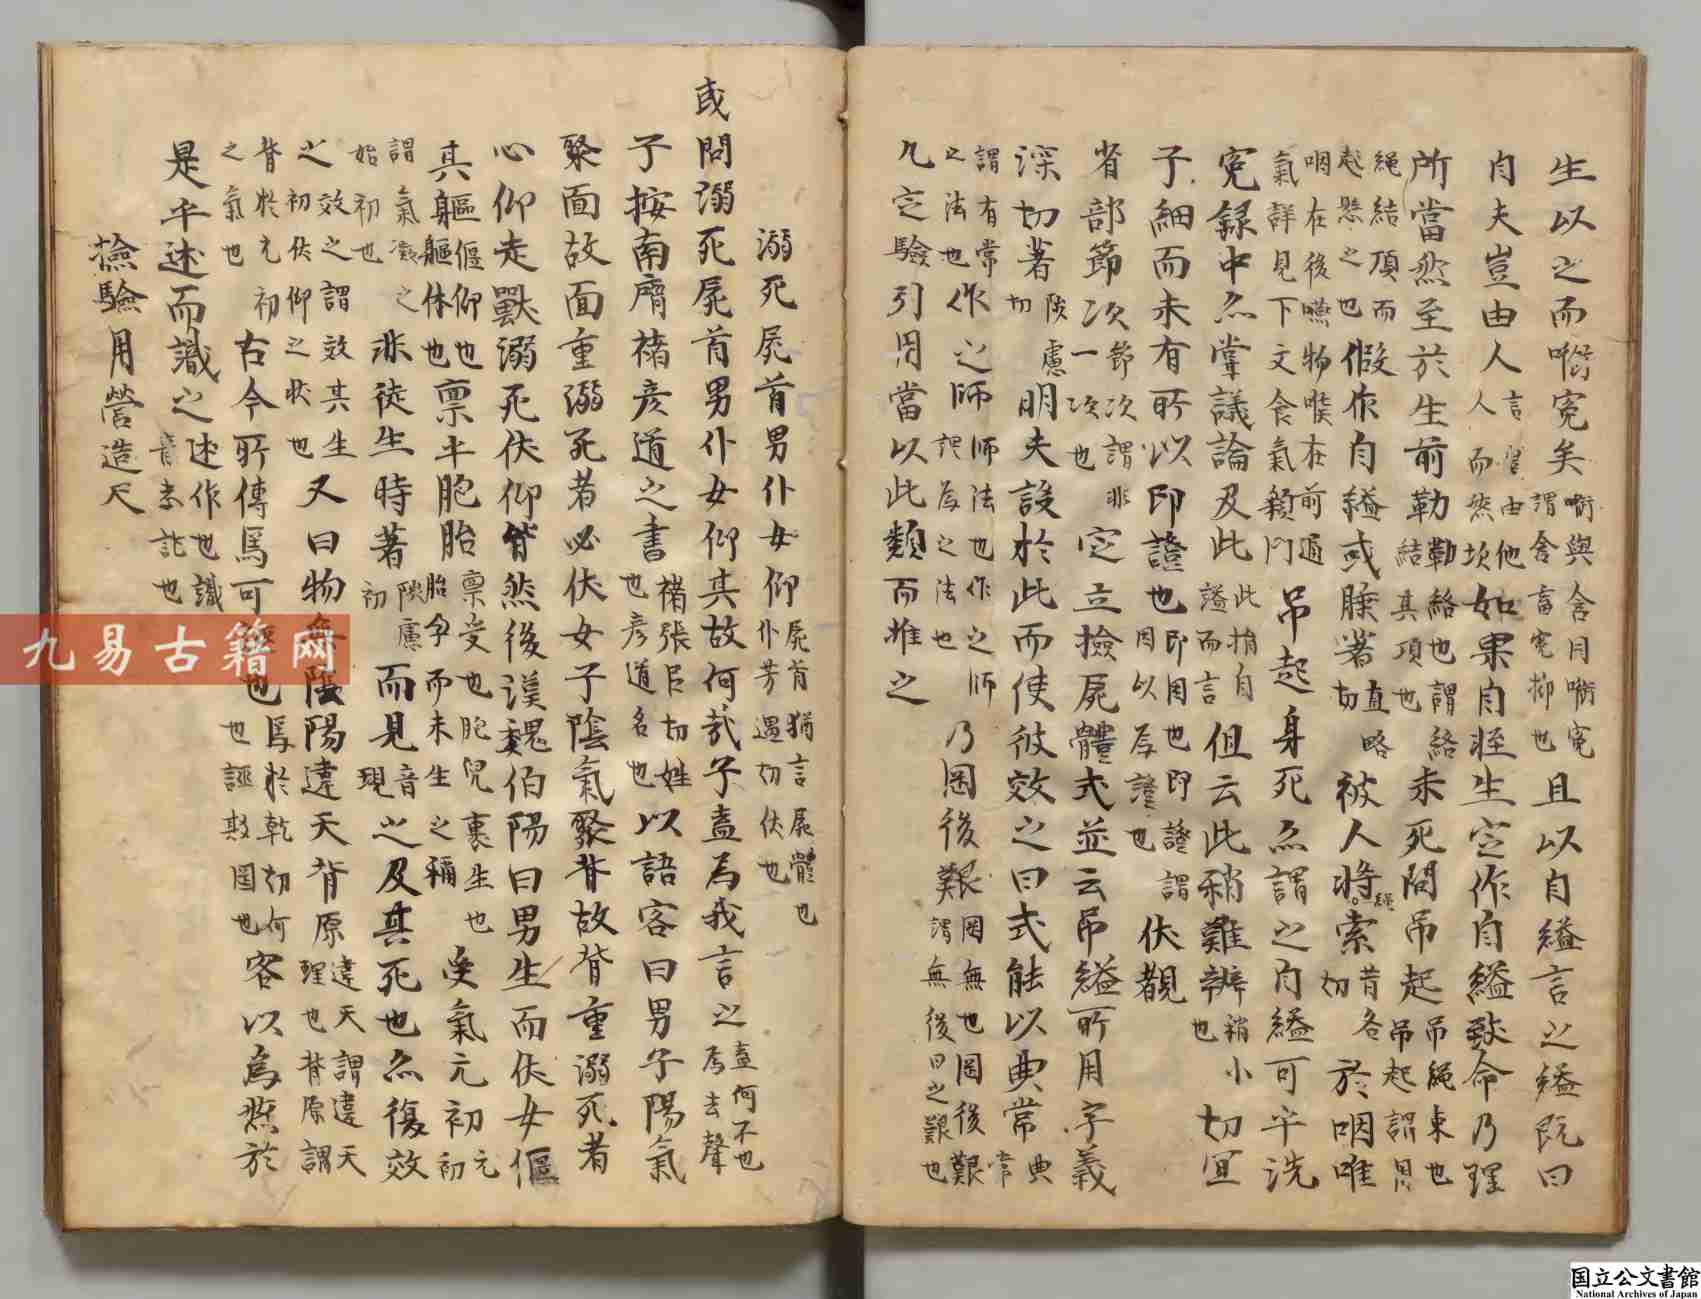 生以之而啣冤矣啣與含同啣冤謂含畜冤抑也且以自縊言之縊既曰
自夫豈由人言豈由他人而然扵如果自生定作自縊致命乃理
所當然至於生前勒結勒絡也謂絡其項也未死間吊起吊繩束也吊起謂用
繩結頂而起懸之也假作自縊或𦜕著直略切被人將索昔各切於咽唯
咽在後嚥物喉在前通氣詳見下文食氣顙門吊起身死亦謂之自縊可乎洗
冤録中亦掌議論及此此指自謚而言但云此稍難辨稍小也切宜
子細而未有所以印證也即用也即證謂用以為證也伏覩
省部節次一節次謂非一次也定立檢屍體式並云吊縊所用字義
深切著陟慮切明夫設於此而使彼效之曰式能以典常典常
謂有常之法也作之師師法也作之師謂為之法也乃罔後艱罔無也罔後艱謂無後日之艱也
凡定驗引用當以此類而推之
溺死屍首男仆女仰屍首猶言屍體也仆芳遇切伏也
或問溺死屍首男仆女仰其故何哉子盍為我言之盍何不也為去聲
子按南唐褚彦道之書褚張呂切姓也彦道名也以語客曰男子陽氣
聚面故面重溺死者必伏女子陰氣聚背故背重溺死者
必仰走獸溺死伏仰皆然後漢魏伯陽曰男生而伏女偃
其軀偃仰也軀体也稟乎胞胎稟受也胞兒裹生也胎孕而未生之稱受氣元初元初
謂氣之始初也非徒生時著陟慮初而見音現之及其死也亦復效
之效之謂效其生初伏仰之狀也又曰物無陰陽違天背原違天謂違天理也背原謂
背於元初之氣也古今所傳焉可誣也焉於乾切何也誣欺罔也客以為然於
是乎述而識之述作也識音志記也
檢驗用營造尺
九易古籍网
国立公文書館
National Archives of Japan